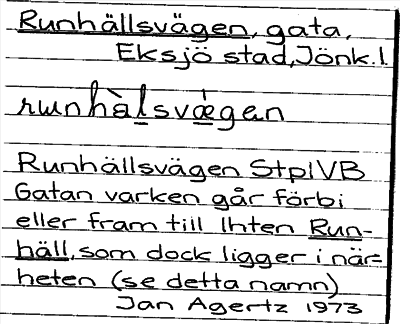 Runhällsvägen, gata,
Eksjö stad, Jönk.l.
runhàlsvæ̀gan
Runhällsvägen StplVB
Gatan varken går förbi
eller fram till lhten Run-
häll, som dock ligger i när=
heten (se detta namn)
Jan Agertz 1973